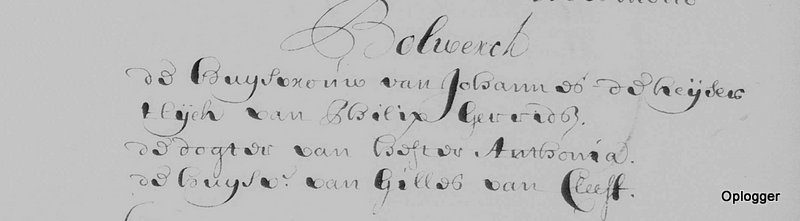 Bolwerck
de huijsvrouw van Johannes de keijser
t lijck van Philix Gerridsz.
de dogter van hester Anthonia.
de huijsv.r van Gilles van Cleeff.
Oplogger